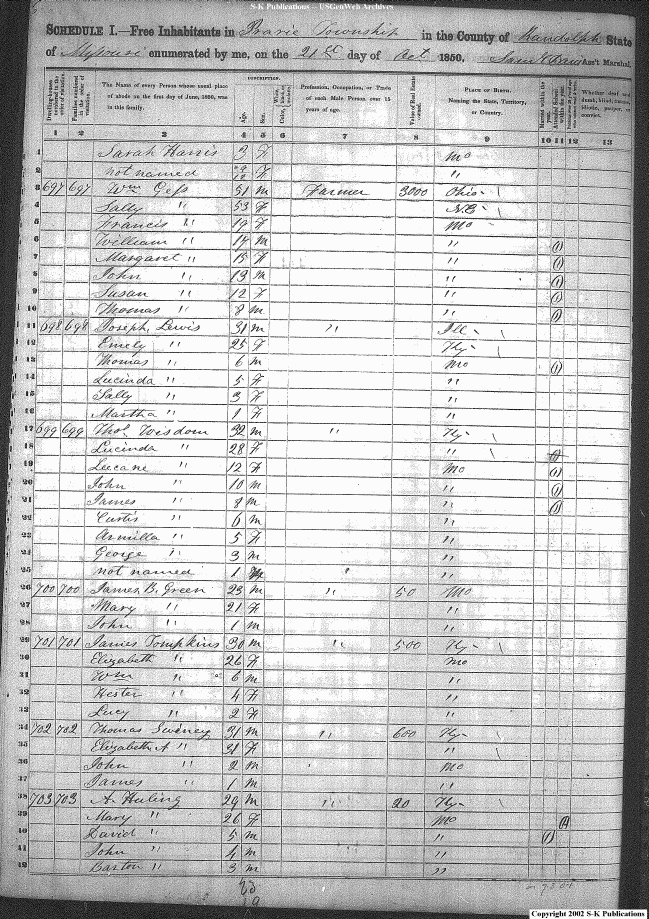 S-K Publications -- USGenWeb Archives
SCHEDULE I.—Free Inhabitants in Prarie Township in the County of Randolph State
of Missouri enumerated by me, on the 21st day of Oct 1850. Ass't Marshal.
Dwelling-houses numbered in the order of visitation.
Families numbered in the order of visitation.
The Name of every Person whose usual place of abode on the first day of June, 1850, was in this family.
DESCRIPTION.
Age.
Sex.
Color,
Profession, Occupation, or Trade of each Male Person over 15 years of age.
Value of Real Estate owned.
PLACE OF BIRTH. Naming the State, Territory, or Country.
Married within the year.
Whether deaf and dumb, blind, insane, idiotic, pauper, or convict.
1 2 3 4 5 6 7 8 9 10 11 12 13
1 Sarah Harris 3 F Mo
2 not named F "
3 697 697 Wm Gess 51 M Farmer 3000 Ohio
4 Sally " 53 F N.C
5 Francis " 19 F Mo
6 William " 17 M " (1)
7 Margaret " 15 F " (1)
8 John " 13 M " (1)
9 Susan " 12 F " (1)
10 Thomas " 8 M " (1)
11 698 698 Joseph Lewis 31 M " Ill
12 Emely " 25 F Ky
13 Thomas " 6 M Mo (1)
14 Lucinda " 5 F "
15 Sally " 3 F "
16 Martha " 1 F "
17 699 699 Thos Wisdom 32 M " Ky
18 Lucinda " 28 F "
19 Lucane " 12 F Mo (1)
20 John " 10 M " (1)
21 James " 8 M " (1)
22 Curtis " 6 M "
23 Armilla " 5 F "
24 George " 3 M "
25 not named 1 "
26 700 700 James B. Green 23 M " 50 Mo
27 Mary " 21 F "
28 John " 1 M "
29 701 701 James Tompkins 30 M " 500 Ky
30 Elizabeth " 26 F Mo
31 Wm " 6 M "
32 Hester " 4 F "
33 Lucy " 2 F "
34 702 702 Thomas Swiney 31 M " 600 Ky
35 Elizabeth A " 31 F "
36 John " 2 M Mo
37 James " 1 M "
38 703 703 A. Huling 29 M " 20 Ky
39 Mary " 26 F Mo
40 David " 5 M " (1)
41 John " 4 M "
42 Barton " 3 M "
Copyright 2002 S-K Publications